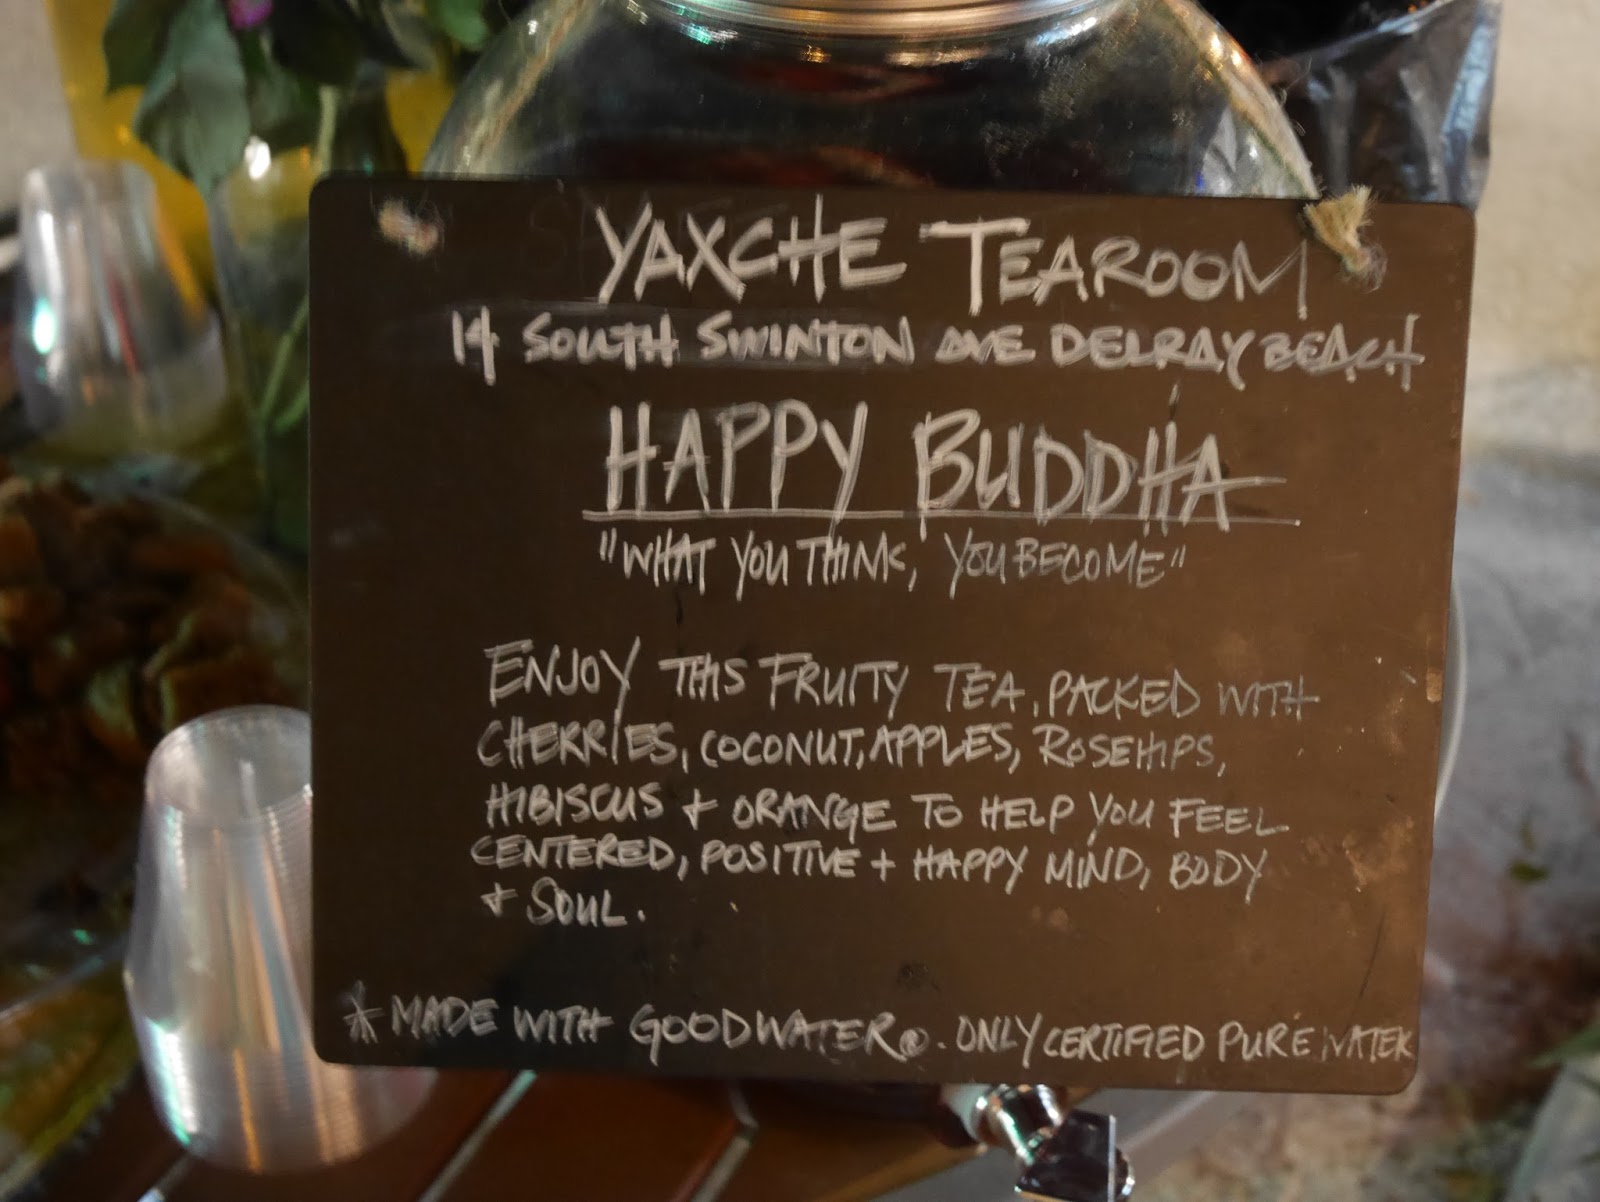 YAXCHE TEAROOM
14 SOUTH SWINTON AVE DELRAY BEACH
HAPPY BUDDHA
"WHAT YOU THINK, YOU BECOME"
ENJOY THIS FRUITY TEA, PACKED WITH
CHERRIES, COCONUT, APPLES, ROSEHIPS,
HIBISCUS + ORANGE TO HELP YOU FEEL
CENTERED, POSITIVE + HAPPY MIND, BODY
+ SOUL.
* MADE WITH GOODWATER®. ONLY CERTIFIED PURE WATER